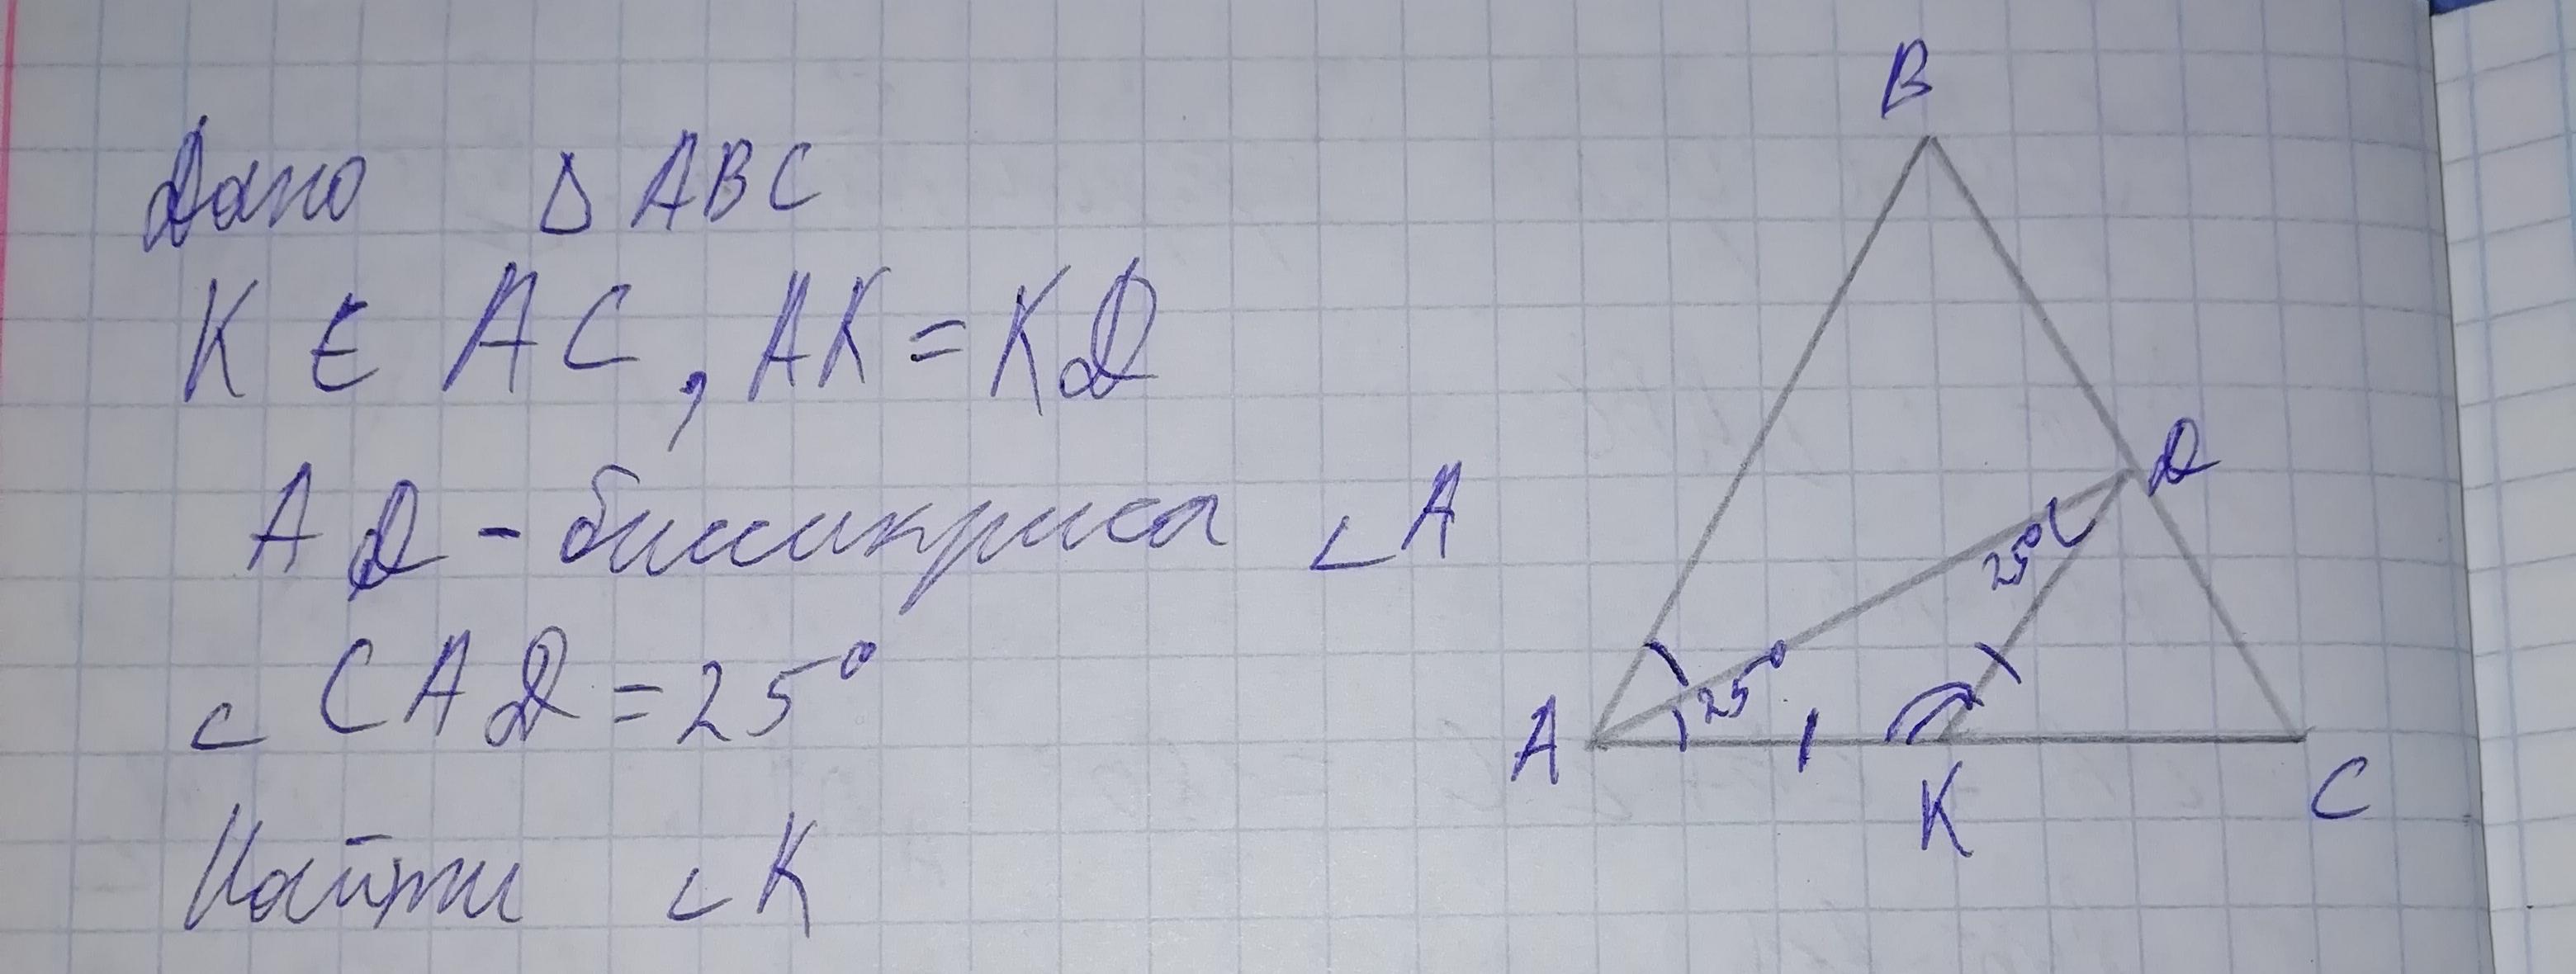 Дано △ ABC
K ∈ AC, AK = KD
AD - биссикриса ∠A
∠CAD = 25°
Найти ∠K
B
D
25°
25°
A
K
C